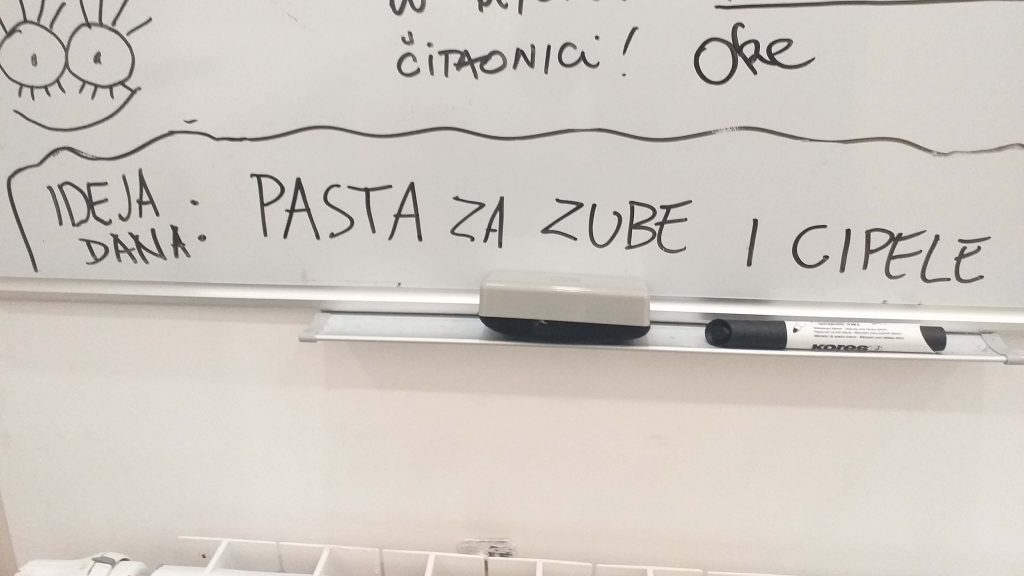 ČITAONICI! Oke
IDEJA DANA: PASTA ZA ZUBE I CIPELE
Kores